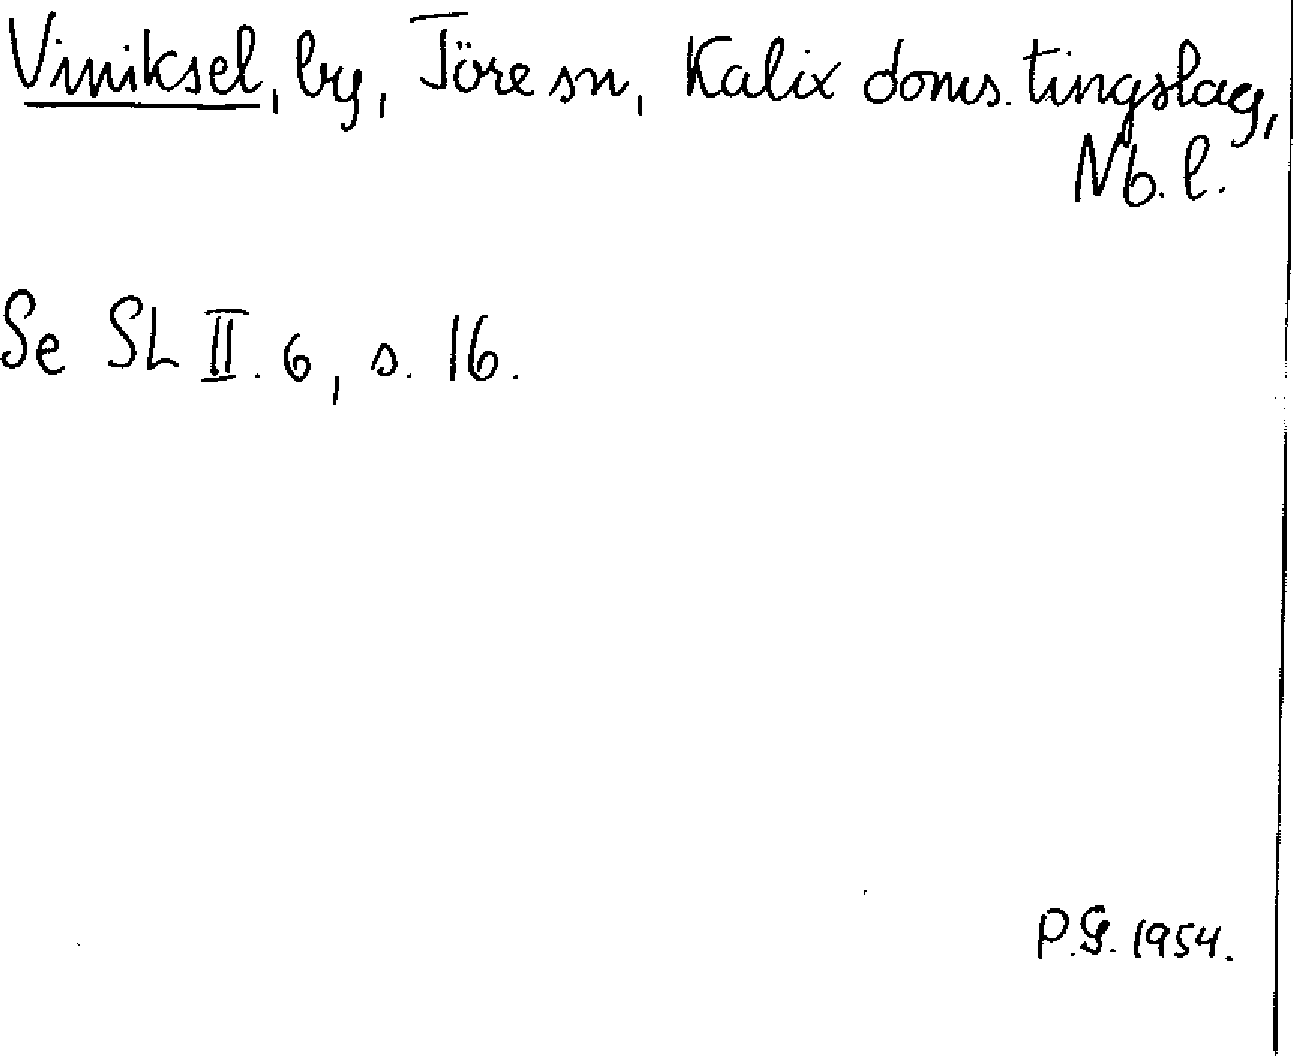 Viniksel, by, Töre sn, Kalix doms. tingslag,
Nb. l.
Se SL II. 6, s. 16.
P.G. 1954.